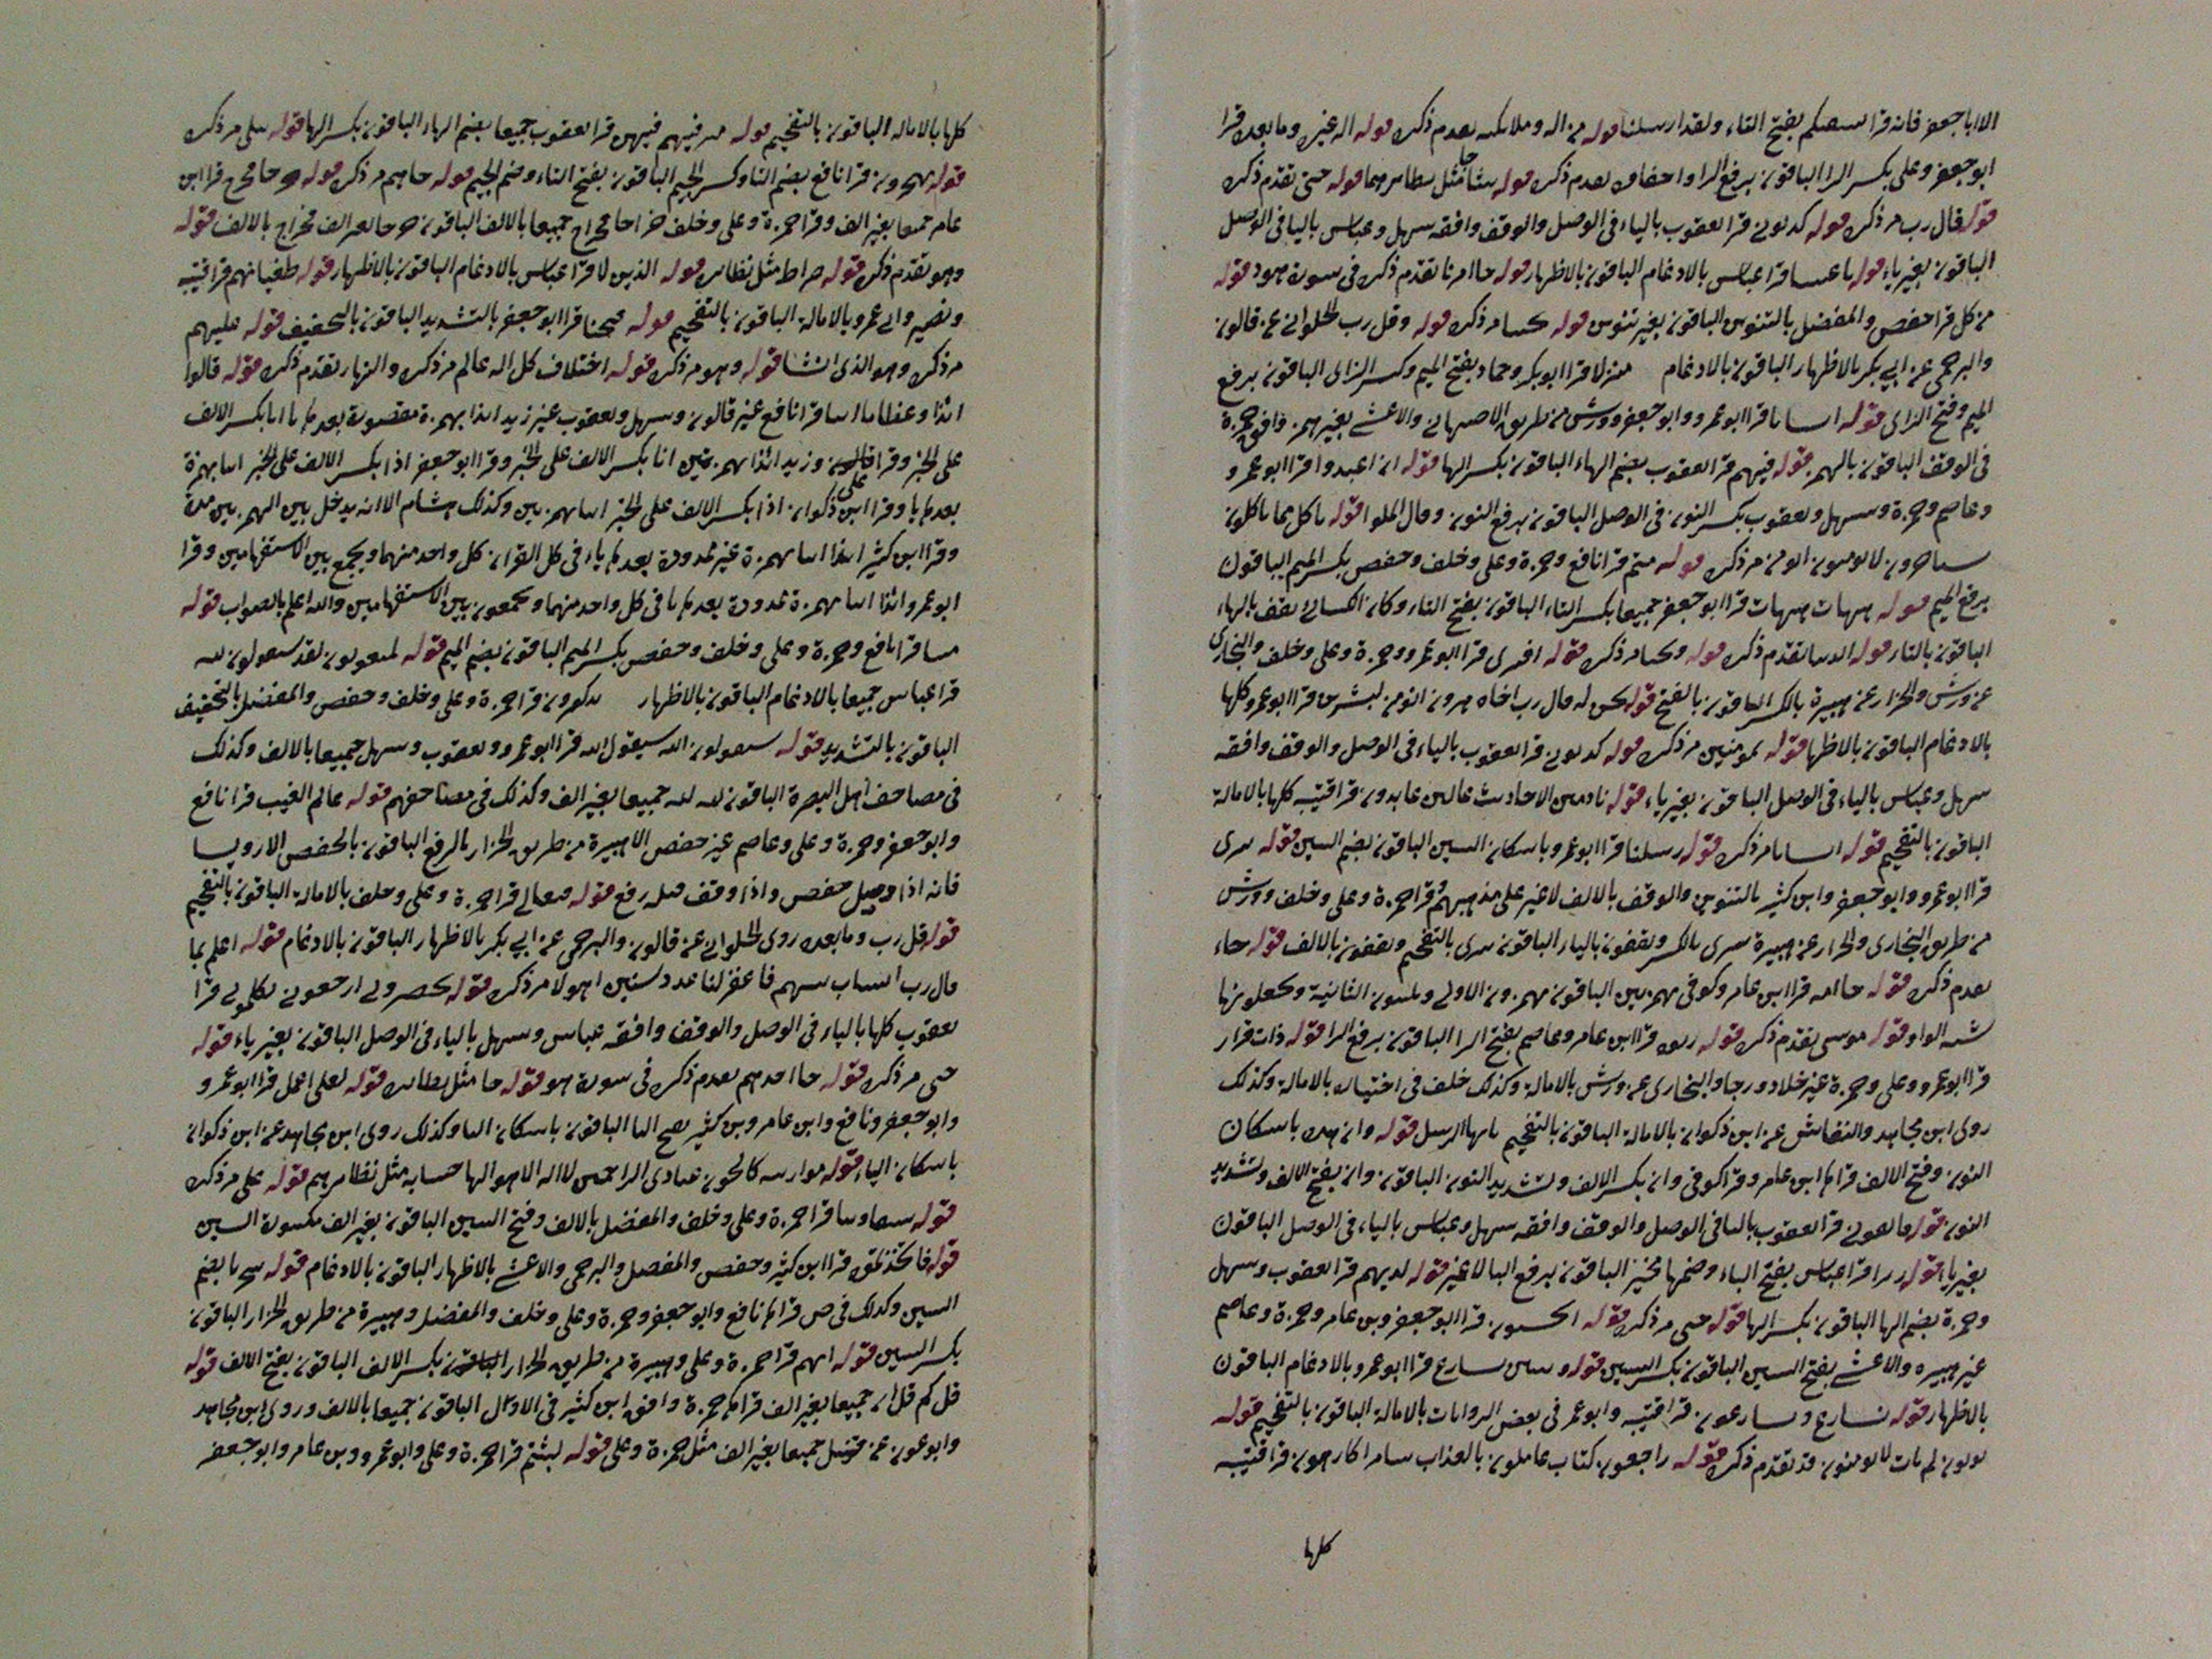 الا اباجعفر فانه قرا سسعكم بفتح التاء ولقد ارسلنا قوله من اله وملائكه بعدم ذكره قوله اله غيره وما بعده قرا
ابوجعفر وعلى بكسر الرا الباقون برفع الرا واحفاف بعدم ذكره قوله شا جا مثل نظايرهما قوله حتى تقدم ذكره
قوله قال رب مر ذكره قوله كذبون قرا يعقوب بالياء فى الوصل والوقف وافقه سهل وعباس باليا فى الوصل
الباقون بغير ياء قوله باعيننا قرا عباس بالادغام الباقون بالاظهار قوله جا امرنا تقدم ذكره فى سورة هود قوله
من كل قرا حفص والمفضل بالتنوين الباقون بغير تنوين قوله مر ذكره قوله وقل رب الحلوانى عن قالون
والبرجمى عن ابى بكر بالاظهار الباقون بالادغام منزلا قرا ابوبكر وحماد بفتح الميم وكسر الزاى الباقون برفع
الميم وفتح الزاى قوله انسانا قرا ابوعمرو وابوجعفر وورش من طريق الاصبهانى والاعشى بغير همز وافق حمزة
فى الوقف الباقون بالهمز قوله فيهم قرا يعقوب بضم الهاء الباقون بكسر الها قوله ان اعبدوا قرا ابوعمرو
وعاصم وحمزة وسهل ويعقوب بكسر النون فى الوصل الباقون برفع النون وقال الملوا قوله ياكل مما ياكلون
لا يومنون مر ذكره قوله متم قرا نافع وحمزة وعلى وخلف وحفص بكسر الميم الباقون
برفع الميم قوله هيهات هيهات قرا ابوجعفر جميعا بكسر التاء الباقون بفتح التاء وكان الكسائى يقف بالهاء
الباقون بالتاء قوله الدنيا تقدم ذكره قوله ونحيا مر ذكره قوله افترى قرا ابوعمرو وحمزة وعلى وخلف والبخارى
عن ورش والخزاز عن هبيرة بالكسر الباقون بالفتح قوله نحن له قال رب اخاه هرون انومن لبشرين قرا ابوعمرو كلها
بالادغام الباقون بالاظهار قوله بمومنين مر ذكره قوله كذبون قرا يعقوب بالياء فى الوصل والوقف وافقه
سهل وعباس بالياء فى الوصل الباقون بغير ياء قوله نادمين الاحاديث عالين عابدون قرا قتيبه كلها بالامالة
الباقون بالتفخيم قوله انسانا مر ذكره قوله رسلنا قرا ابوعمرو باسكان السين الباقون بضم السين قوله تترى
قرا ابوعمرو وابوجعفر وابن كثير بالتنوين والوقف بالالف لا غير على مذهبهم وقرا حمزة وعلى وخلف وورش
من طريق البخارى والخزاز عن هبيرة تترى بالكسر ويقفون بالياء الباقون تترى بالتفخيم ويقفون بالالف قوله جاء
بعدم ذكره قوله جا امه قرا ابن عامر وكوفى بهمزتين الباقون بهمزون الاولى ويلينون الثانية ويجعلونها
شبه الواو قوله موسى تقدم ذكره قوله ربوه قرا ابن عامر وعاصم بفتح الرا الباقون برفع الرا قوله ذات قرار
قرا ابوعمرو وعلى وحمزة غير خلاد ورجا والبخارى عن ورش بالامالة وكذلك خلف فى اختياره بالامالة وكذلك
روى ابن مجاهد والنقاش عن ابن ذكوان بالامالة الباقون بالتفخيم ياايها الرسل قوله وان هذه باسكان
النون وفتح الالف قراها ابن عامر وقرا كوفى وان بكسر الالف وتشديد النون الباقون وان بفتح الالف وتشديد
النون قوله فاتقون قرا يعقوب باليا فى الوصل والوقف وافقه سهل وعباس بالياء فى الوصل الباقون
بغير ياء قوله زبرا قرا عباس بفتح الباء وضمها مخير الباقون برفع البا لا غير قوله لديهم قرا يعقوب وسهل
وحمزة بضم الها الباقون بكسر الها قوله حتى مر ذكره قوله ايحسبون قرا ابوجعفر وبن عامر وحمزة وعاصم
غير هبيره والاعشى بفتح السين الباقون بكسر السين قوله وبنين نسارع قرا ابوعمرو بالادغام الباقون
بالاظهار قوله نسارع ويسارعون قرا قتيبه وابوعمر فى بعض الروايات بالامالة الباقون بالتفخيم قوله
يوتون لم يات لا يومنون قد تقدم ذكره قوله راجعون كتاب عاملون بالعذاب سامرا كارهون قرا قتيبه
كلها
كلها بالامالة الباقون بالتفخيم قوله فيهم فيهن قرا يعقوب جميعا بضم الهاء الباقون بكسر الها قوله تتلى مر ذكره
قوله تهجرون قرا نافع بضم التا وكسر الجيم الباقون بفتح التاء وضم الجيم قوله جاهم مر ذكره قوله خرجا فخرج قرا ابن
عامر جميعا بغير الف وقرا حمزة وعلى وخلف خراجا فخراج جميعا بالالف الباقون خرجا بغير الف فخراج بالالف قوله
وهو تقدم ذكره قوله صراط مثل نظايره قوله الذين لا قرا عباس بالادغام الباقون بالاظهار قوله طغيانهم قرا قتيبه
ونصير وابى عمرو بالامالة الباقون بالتفخيم قوله فتحنا قرا ابوجعفر بالتشديد الباقون بالتخفيف قوله عليهم
مر ذكره وهو الذى انشا قوله وهو مر ذكره قوله اختلاف كل اله عالم مر ذكره والنهار تقدم ذكره قوله قالوا
ائذا وعظاما اينا قرا نافع غير قالون وسهل ويعقوب غير زيد ائذا بهمزة مقصورة بعدها يا انا بكسر الالف
على الخبر وقرا قالون وزيد ائذا بهمزتين انا بكسر الالف على الخبر وقرا ابوجعفر اذا بكسر الالف على الخبر اينا بهمزة
بعدها يا وقرا ابن ذكوان اذا بكسر الالف على الخبر اينا بهمزتين وكذلك هشام الا انه يدخل بين الهمزتين مدة
وقرا ابن كثير ائذا اينا بهمزة غير ممدودة بعدها ياء فى كل القران كل واحد منهما ويجمع بين الاستفهامين وقرا
ابوعمرو ائذا اينا بهمزة ممدودة بعدها يا فى كل واحد منهما ويجمعون بين الاستفهامين والله اعلم بالصواب قوله
متنا قرا نافع وحمزة وعلى وخلف وحفص بكسر الميم الباقون بضم الميم قوله لمبعوثون لقد سيقولون لله
قرا عباس جميعا بالادغام الباقون بالاظهار تذكرون قرا حمزة وعلى وخلف وحفص والمفضل بالتخفيف
الباقون بالتشديد قوله سيقولون الله سيقول الله قرا ابوعمرو ويعقوب وسهل جميعا بالالف وكذلك
فى مصاحف اهل البصرة الباقون لله لله جميعا بغير الف وكذلك فى مصاحفهم قوله عالم الغيب قرا نافع
وابوجعفر وحمزة وعلى وعاصم غير حفص الا هبيرة من طريق الخزاز بالرفع الباقون بالخفض الا رويسا
فانه اذا وصل خفض واذا وقف قبله رفع قوله فتعالى قرا حمزة وعلى وخلف بالامالة الباقون بالتفخيم
قوله قل رب وما بعده روى الحلوانى عن قالون والبرجمى عن ابى بكر بالاظهار الباقون بالادغام قوله اعلم بما
قال رب انساب بينهم فاغفر لنا عدد سنين اهولا مر ذكره قوله يحضرون ارجعون تكلمون قرا
يعقوب كلها بالياء فى الوصل والوقف وافقه عباس وسهل بالياء فى الوصل الباقون بغير ياء قوله
حتى مر ذكره قوله جا احدهم بعدم ذكره فى سورة هود قوله جا مثل نظايره قوله لعلى اعمل قرا ابوعمرو
وابوجعفر ونافع وابن عامر وبن كثير بفتح اليا الباقون باسكان اليا وكذلك روى ابن مجاهد عن ابن ذكوان
باسكان الياء قوله موازينه كالحون عبادى الراحمين لا اله الا هو الها حسابه مثل نظايرهم قوله على مر ذكره
قوله شقاوتنا قرا حمزة وعلى وخلف والمفضل بالالف وفتح السين الباقون بغير الف مكسورة السين
قوله فاتخذتموهم قرا ابن كثير وحفص والمفضل والبرجمى والاعشى بالاظهار الباقون بالادغام قوله سخريا بضم
السين وكذلك فى ص قراها نافع وابوجعفر وحمزة وعلى وخلف والمفضل وهبيرة من طريق الخزاز الباقون
بكسر السين قوله انهم قرا حمزة وعلى وهبيرة من طريق الخزاز بكسر الالف الباقون بفتح الالف قوله
قل كم قل ان جميعا بغير الف قراها حمزة وافق ابن كثير فى الاول الباقون جميعا بالالف وروى ابن مجاهد
وابو عون عن قنبل جميعا بغير الف مثل حمزة وعلى قوله لبثتم قرا حمزة وعلى وابوعمرو وبن عامر وابوجعفر